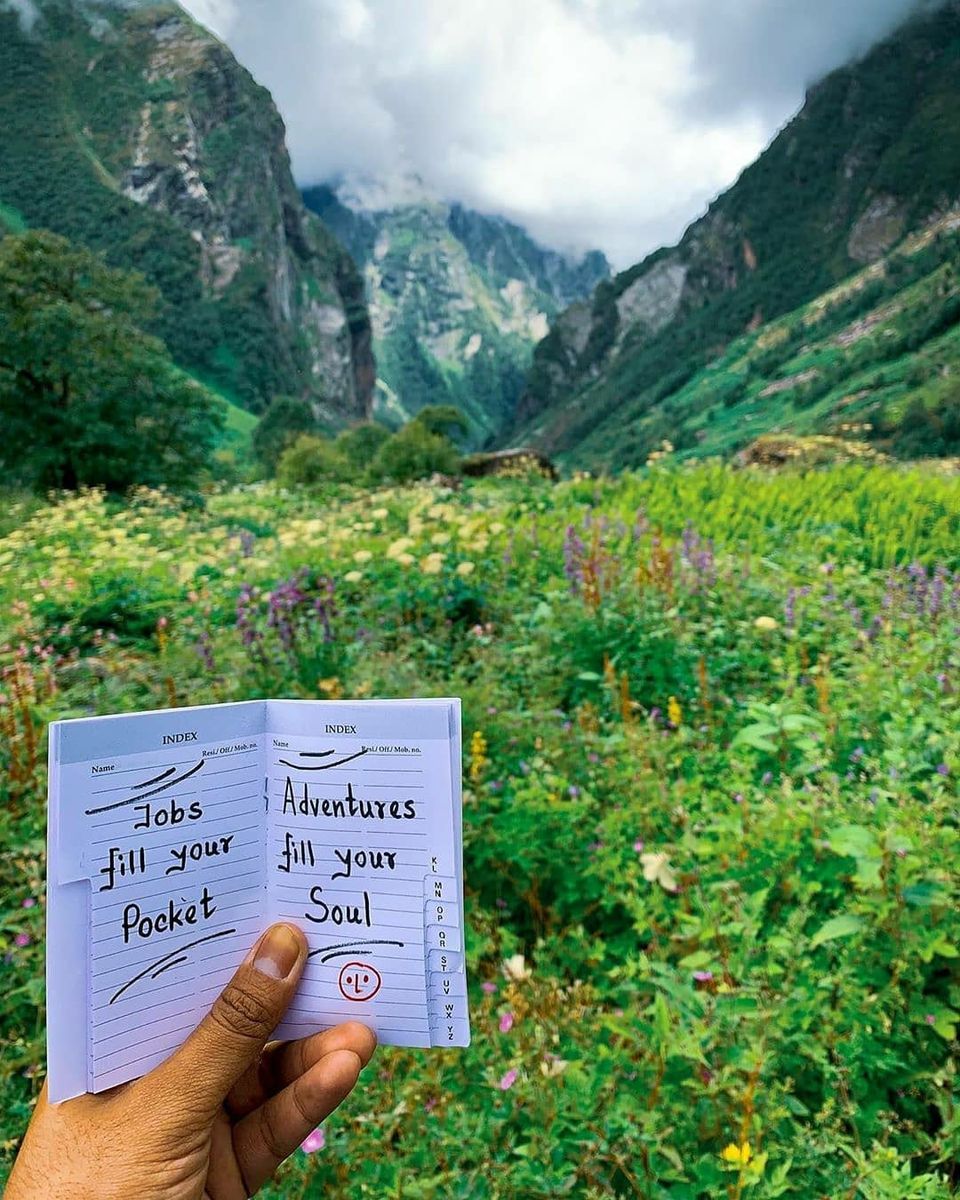 INDEX
Name Resi./ Off./ Mob. no.
Jobs
fill your
Pocket
INDEX
Name Resi./ Off./ Mob. no.
Adventures
fill your
Soul
KL
MN
OP
QR
ST
UV
WX
YZ